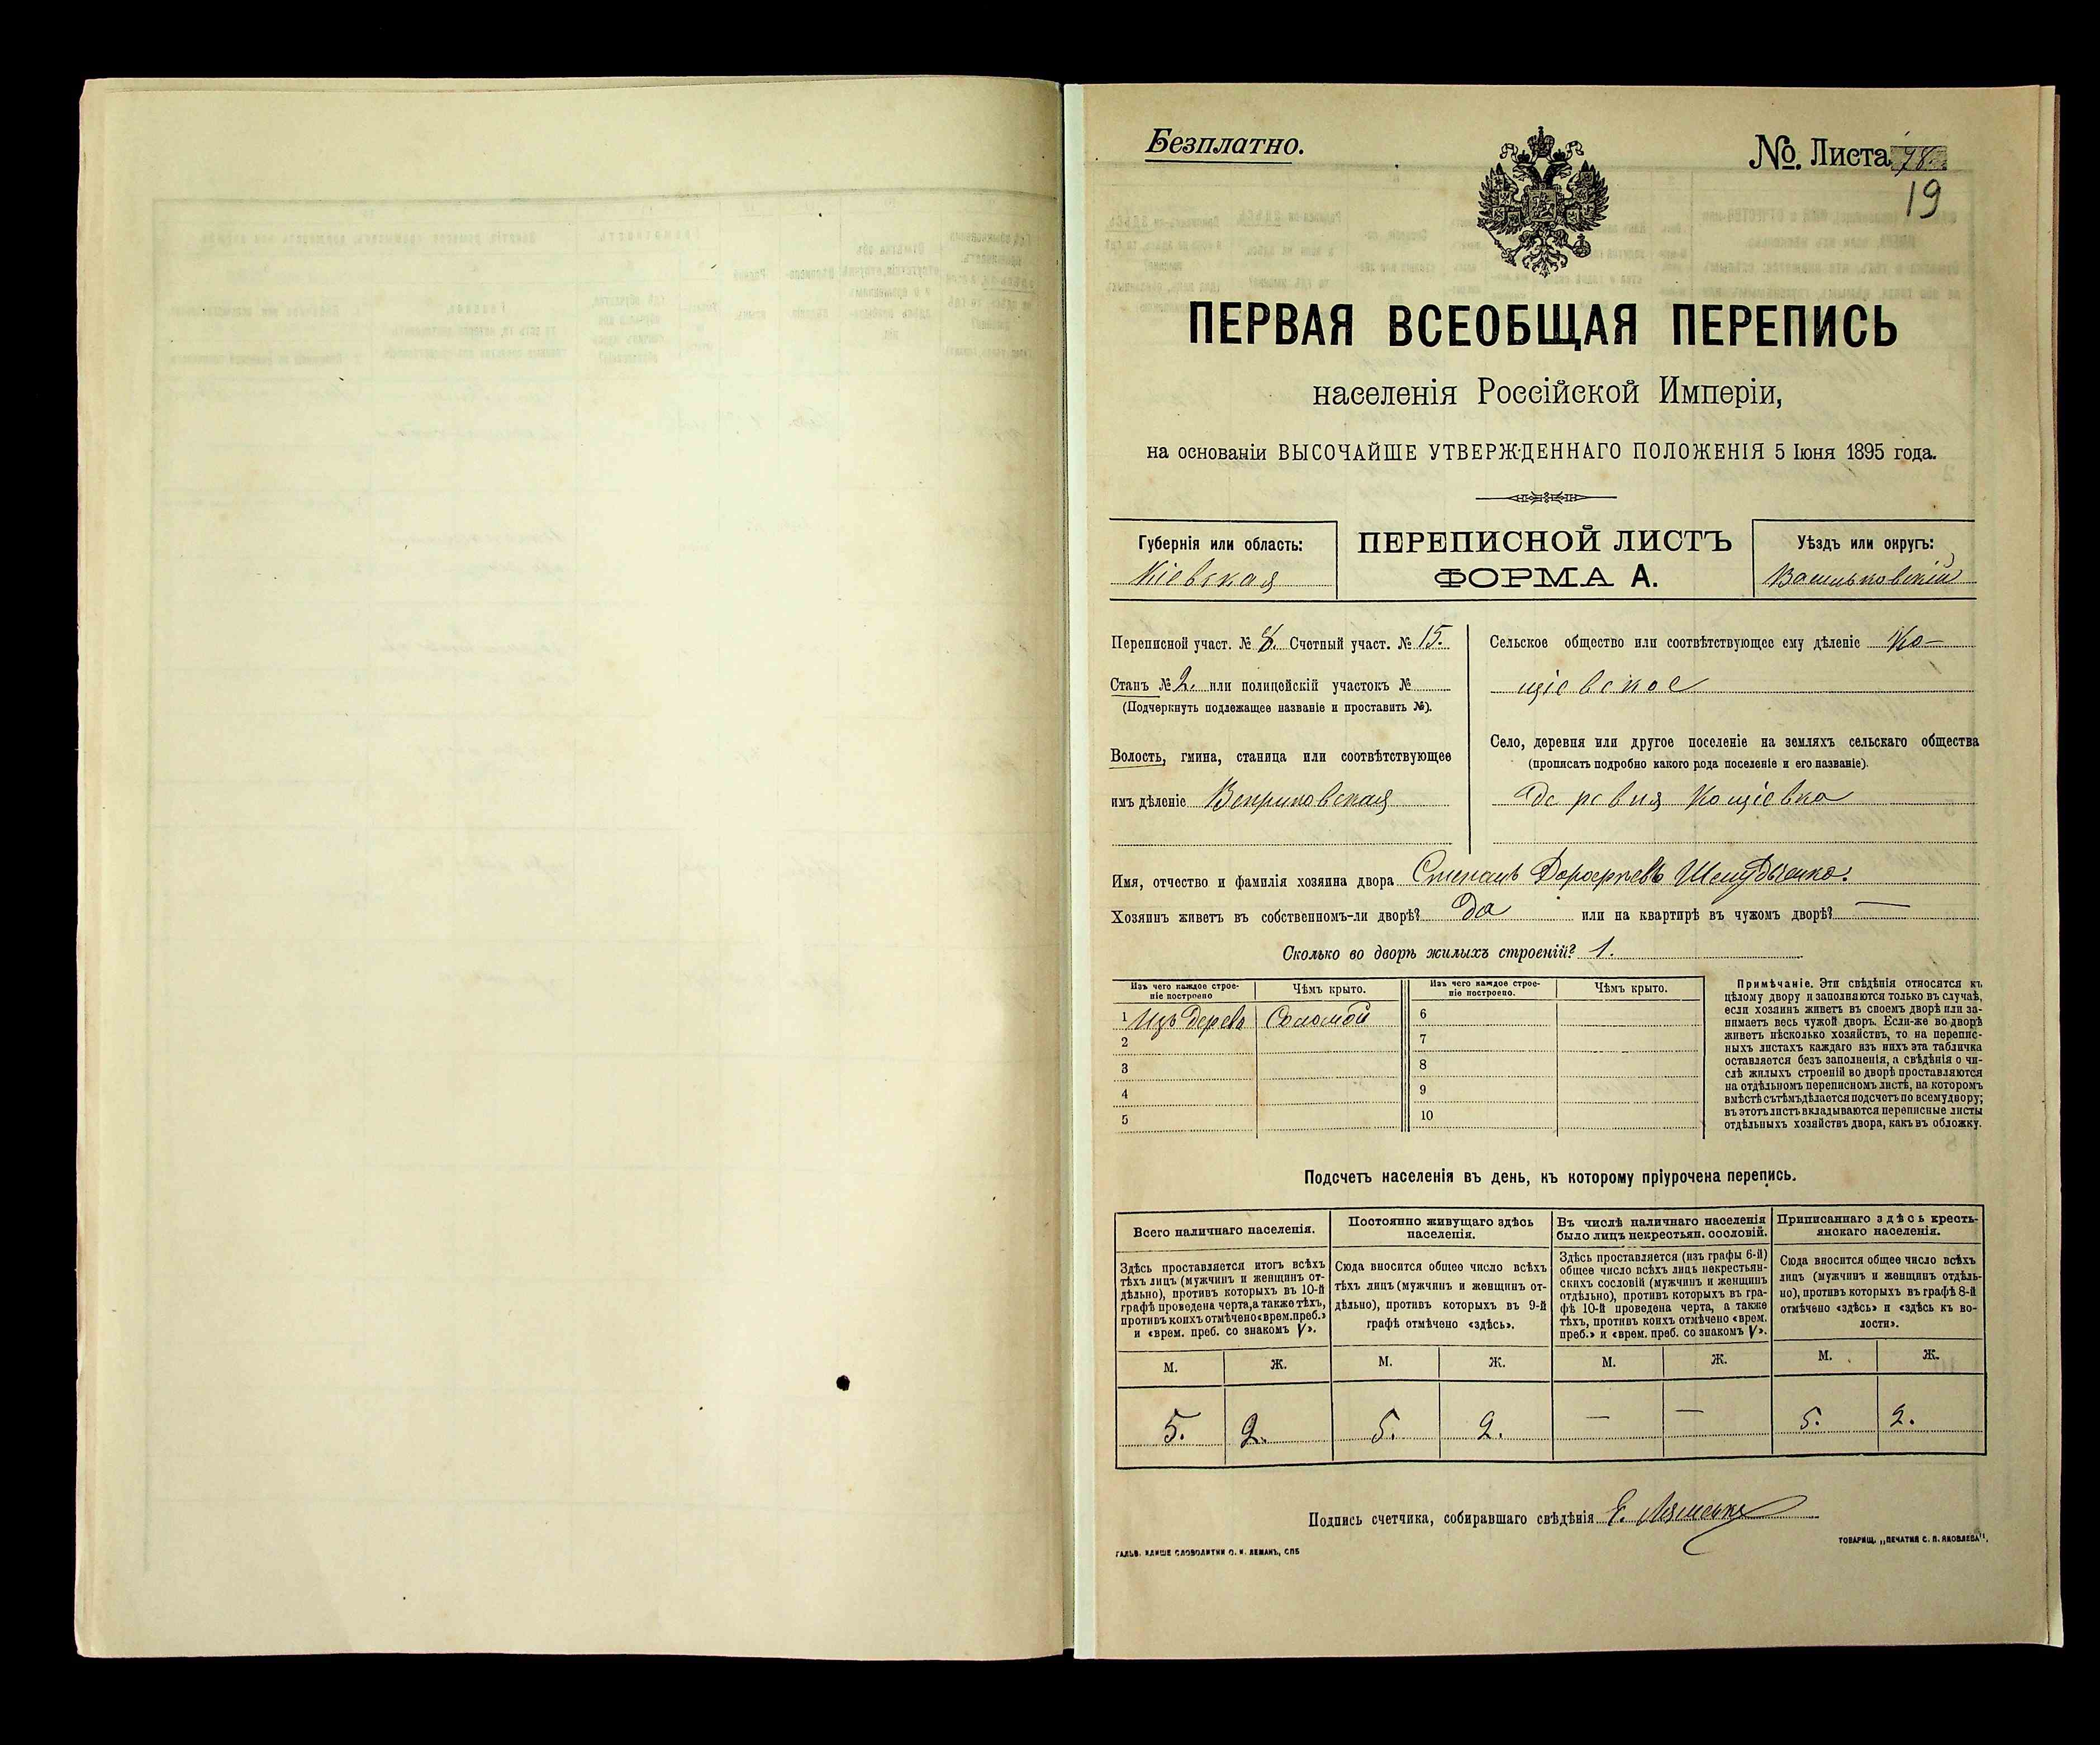 Безплатно.
№. Листа 98.
19
ПЕРВАЯ ВСЕОБЩАЯ ПЕРЕПИСЬ
населенія Россійской Имперіи,
на основаніи ВЫСОЧАЙШЕ УТВЕРЖДЕННАГО ПОЛОЖЕНІЯ 5 Іюня 1895 года.
Губернія или область:
Кіевская
ПЕРЕПИСНОЙ ЛИСТЪ
ФОРМА А.
Уѣздъ или округъ:
Васильковскій
Переписной участ. № 8. Счетный участ. № 15.
Станъ № 2. или полицейскій участокъ №
(Подчеркнуть подлежащее названіе и проставить №).
Волость, гмина, станица или соотвѣтствующее
имъ дѣленіе Веприковская
Сельское общество или соотвѣтствующее ему дѣленіе Ко-
щіевское
Село, деревня или другое поселеніе на земляхъ сельскаго общества
(прописать подробно какого рода поселеніе и его названіе).
деревня Кощіевка
Имя, отчество и фамилія хозяина двора Степанъ Дорофѣевъ
Хозяинъ живетъ въ собственномъ-ли дворѣ? Да или на квартирѣ въ чужомъ дворѣ? —
Сколько во дворѣ жилыхъ строеній? 1.
Изъ чего каждое строе-
ніе построено
Чѣмъ крыто.
Изъ чего каждое строе-
ніе построено.
Чѣмъ крыто.
1 Изъ дерева Соломой
2
3
4
5
6
7
8
9
10
Примѣчаніе. Эти свѣдѣнія относятся къ
цѣлому двору и заполняются только въ случаѣ,
если хозяинъ живетъ въ своемъ дворѣ или за-
нимаетъ весь чужой дворъ. Если-же во дворѣ
живетъ нѣсколько хозяйствъ, то на перепис-
ныхъ листахъ каждаго изъ нихъ эта табличка
оставляется безъ заполненія, а свѣдѣнія о чи-
слѣ жилыхъ строеній во дворѣ проставляются
на отдѣльномъ переписномъ листѣ, на которомъ
вмѣстѣ съ тѣмъ дѣлается подсчетъ по всему двору;
въ этотъ листъ вкладываются переписные листы
отдѣльныхъ хозяйствъ двора, какъ въ обложку.
Подсчетъ населенія въ день, къ которому пріурочена перепись.
Всего наличнаго населенія.
Здѣсь проставляется итогъ всѣхъ
тѣхъ лицъ (мужчинъ и женщинъ от-
дѣльно), противъ которыхъ въ 10-й
графѣ проведена черта, а также тѣхъ,
противъ коихъ отмѣчено «врем. преб.»
и «врем. преб. со знакомъ V».
Постоянно живущаго здѣсь
населенія.
Сюда вносится общее число всѣхъ
тѣхъ лицъ (мужчинъ и женщинъ от-
дѣльно), противъ которыхъ въ 9-й
графѣ отмѣчено «здѣсь».
Въ числѣ наличнаго населенія
было лицъ некрестьян. сословій.
Здѣсь проставляется (изъ графы 6-й)
общее число всѣхъ лицъ некрестьян-
скихъ сословій (мужчинъ и женщинъ
отдѣльно), противъ которыхъ въ гра-
фѣ 10-й проведена черта, а также
тѣхъ, противъ коихъ отмѣчено «врем.
преб.» и «врем. преб. со знакомъ V».
Приписаннаго здѣсь кресть-
янскаго населенія.
Сюда вносится общее число всѣхъ
лицъ (мужчинъ и женщинъ отдѣль-
но), противъ которыхъ въ графѣ 8-й
отмѣчено «здѣсь» и «здѣсь къ во-
лости».
М. Ж. М. Ж. М. Ж. М. Ж.
5. 2. 5. 2. — — 5. 2.
Подпись счетчика, собиравшаго свѣдѣнія
ГАЛЬВ. КЛИШЕ СЛОВОЛИТНИ О. И. ЛЕМАНЪ, СПБ
ТОВАРИЩ. „ПЕЧАТНЯ С. П. ЯКОВЛЕВА".